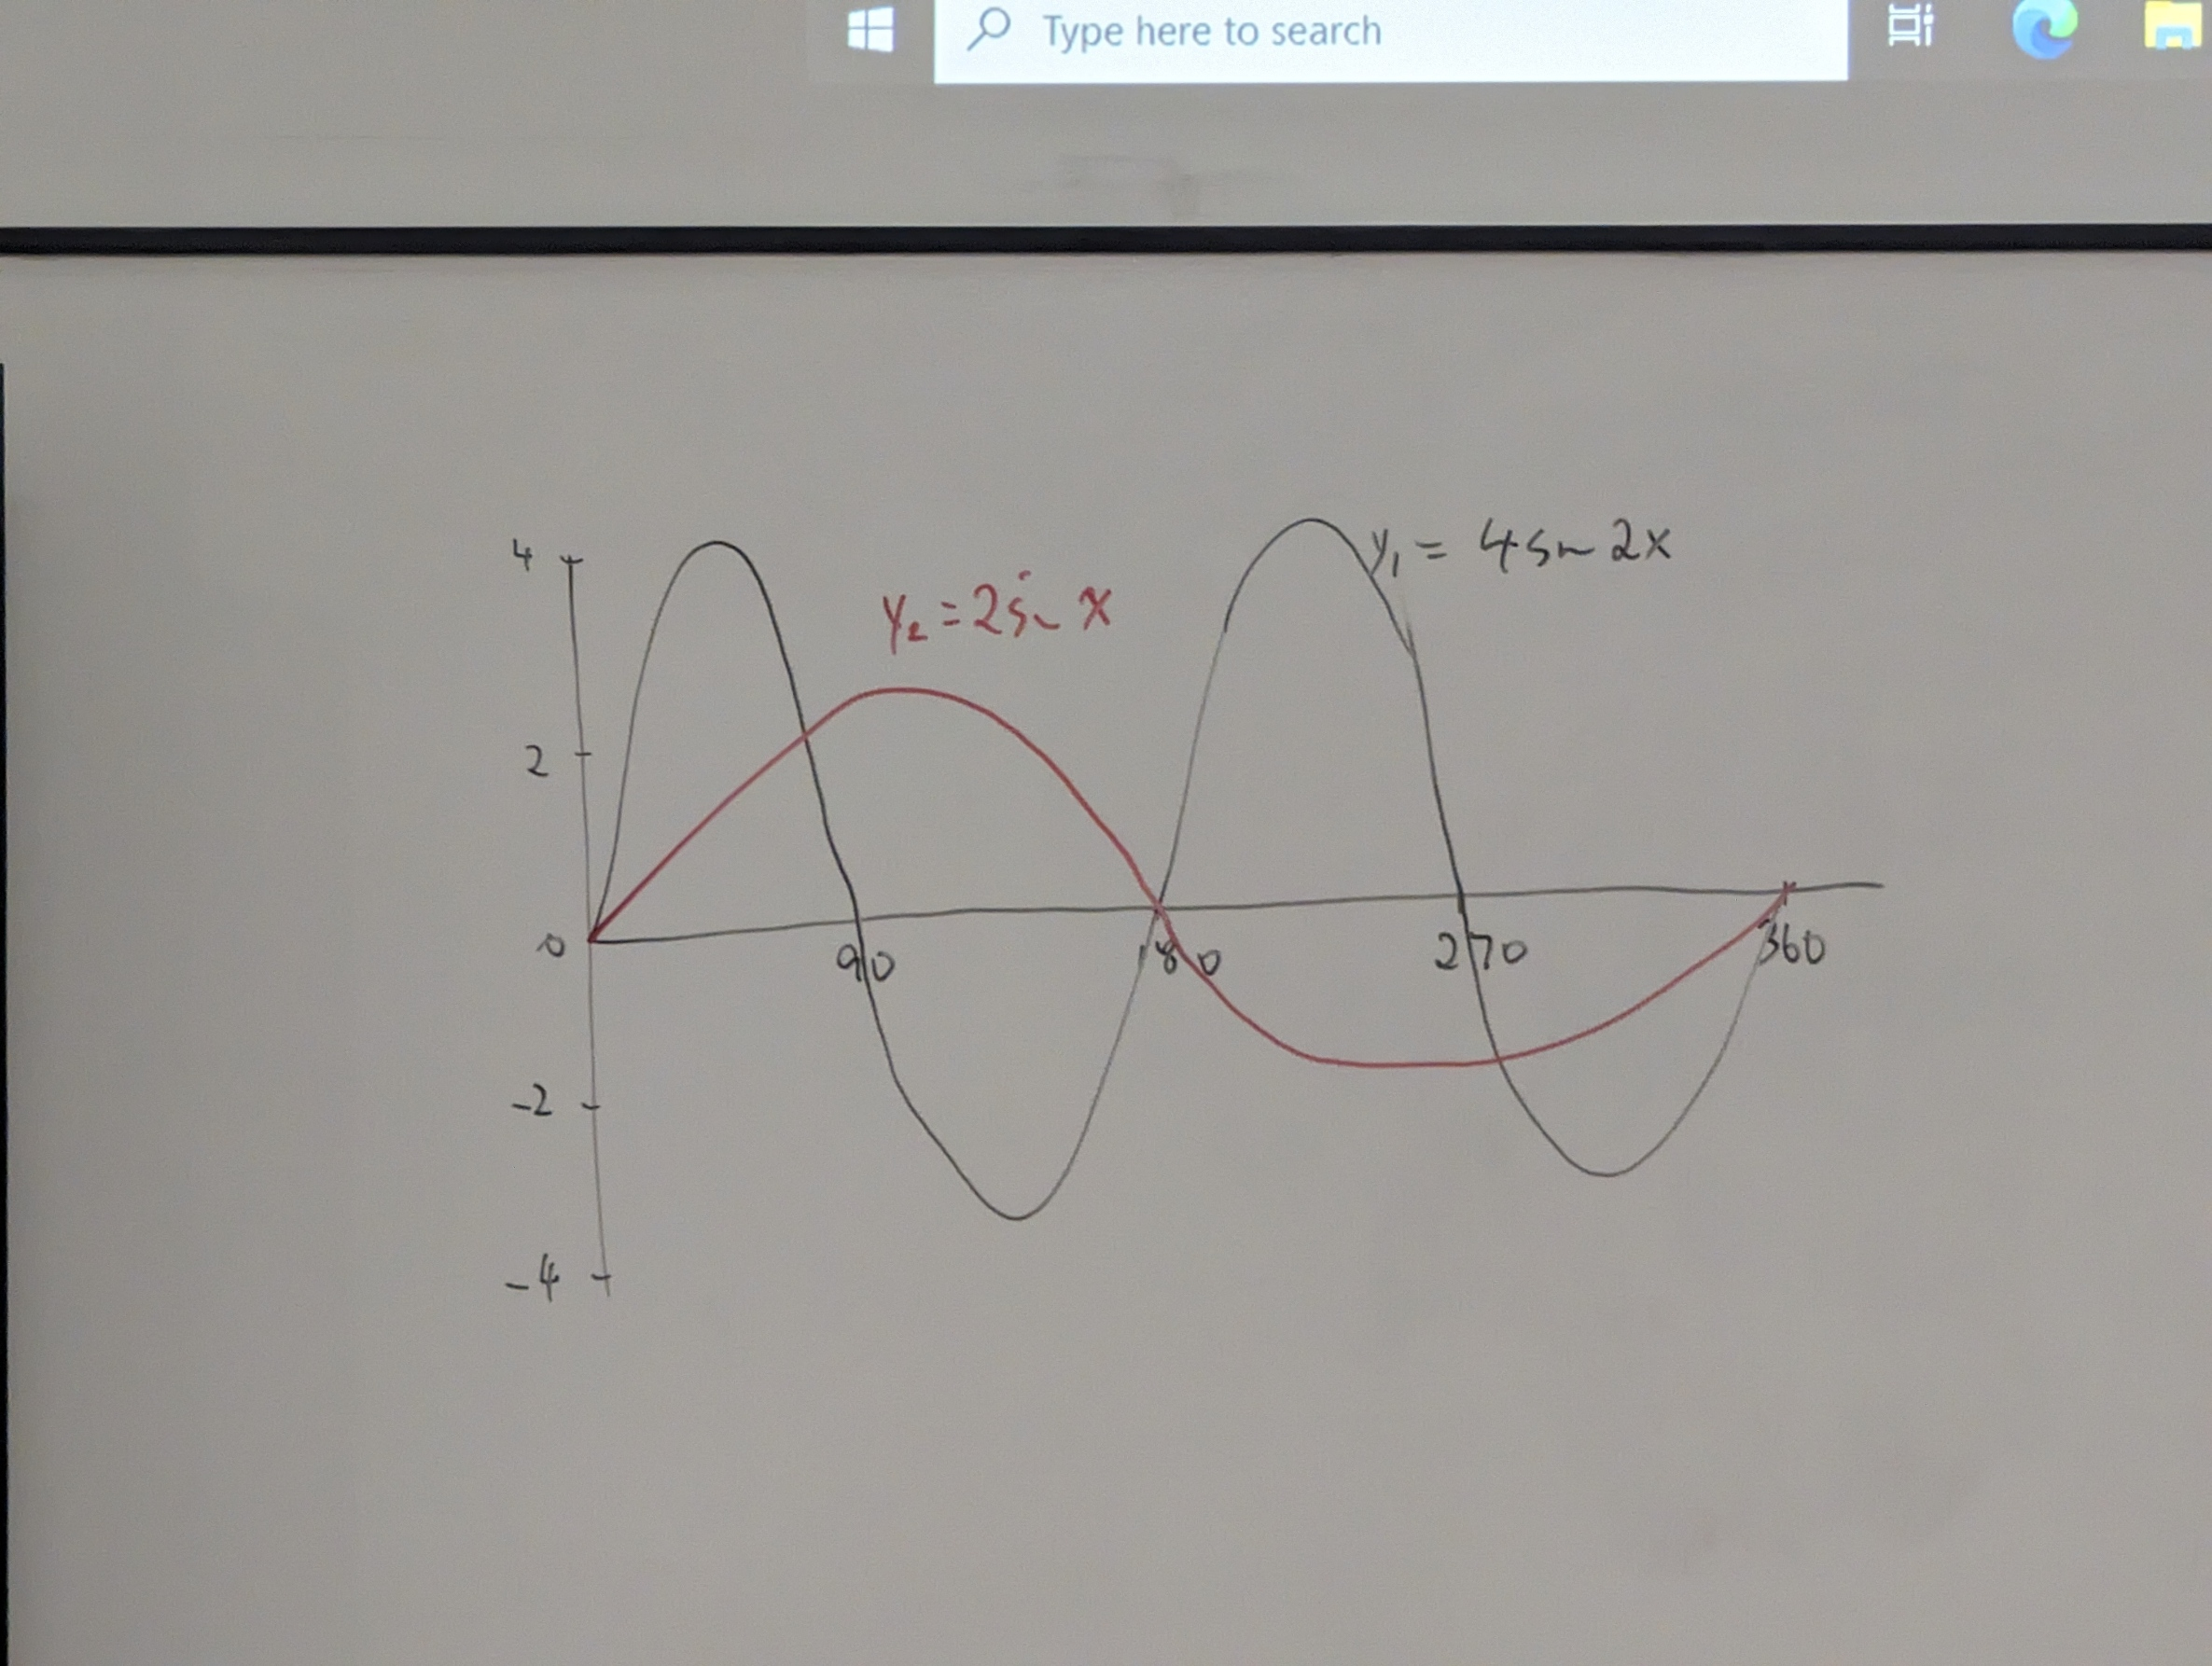 Type here to search
4
y₁ = 4 sin 2x
y₂ = 2 sin x
2
0
90
180
270
360
-2
-4